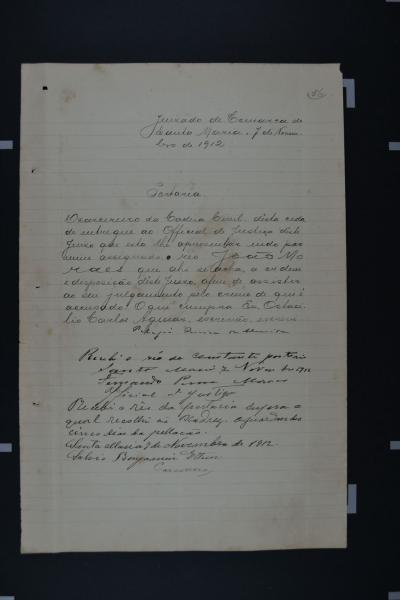 Juizado de Comarca de
Santa Maria, 7 de Novem
bro de 1912
Portaria
O carcereiro da Cadeia Civil, desta cida
de entregue ao Official de Justiça deste
Juizo que esta lhe apresentar, indo por
mim assignada, o réo João Mo
raes que ahi se acha, a ordem
e disposição deste Juizo, afim de assistir
ao seu julgamento pelo crime de que é
accusado. O que cumpra. Eu,
Carlos Aguiar, escrivão, escrevi
Recebi o réo de constante portaria
Santa Maria 7 Novembro 1912
Fernando
Official de Justiça
Recebi o réo da portaria supra o
qual recolhi ao Xadrez
cinco
Santa Maria 7 de Novembro de 1912.
Benjamin
Carcereiro